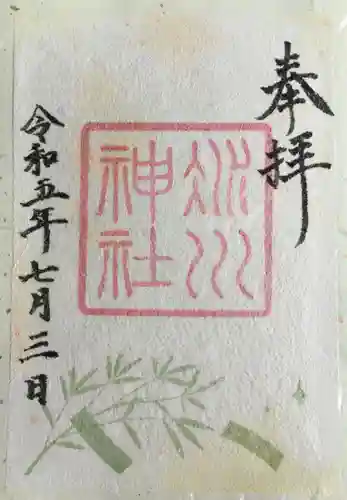 奉拝
氷川
神社
令和五年七月三日